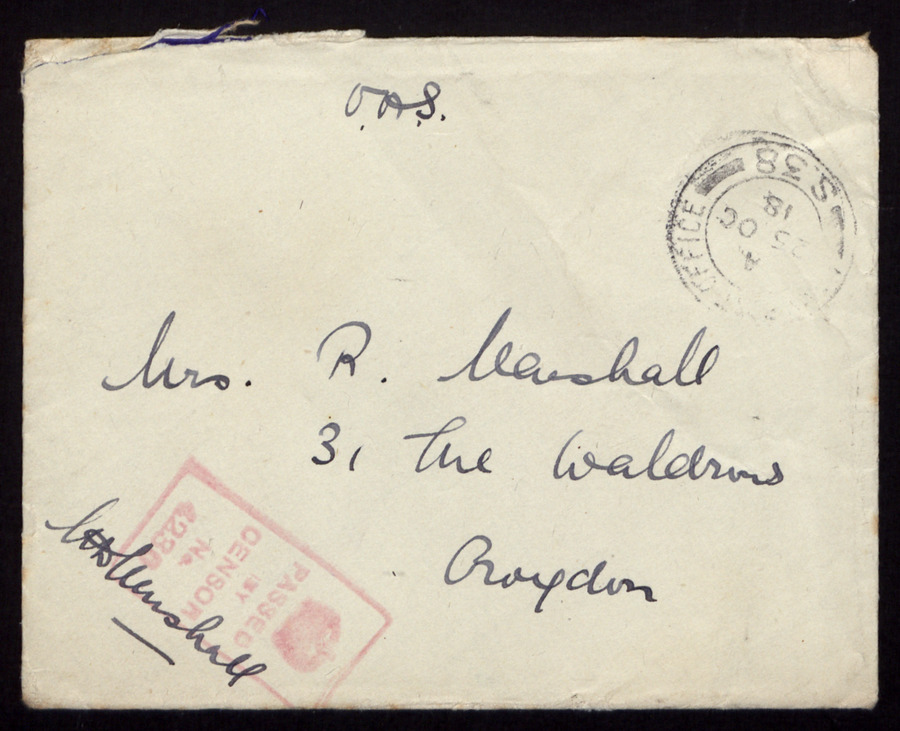 O.A.S.
OFFICE S.38
A
25 OC
18
Mrs. R. Marshall
31 The Waldrons
Croydon
PASSED
BY
CENSOR
No.
Marshall